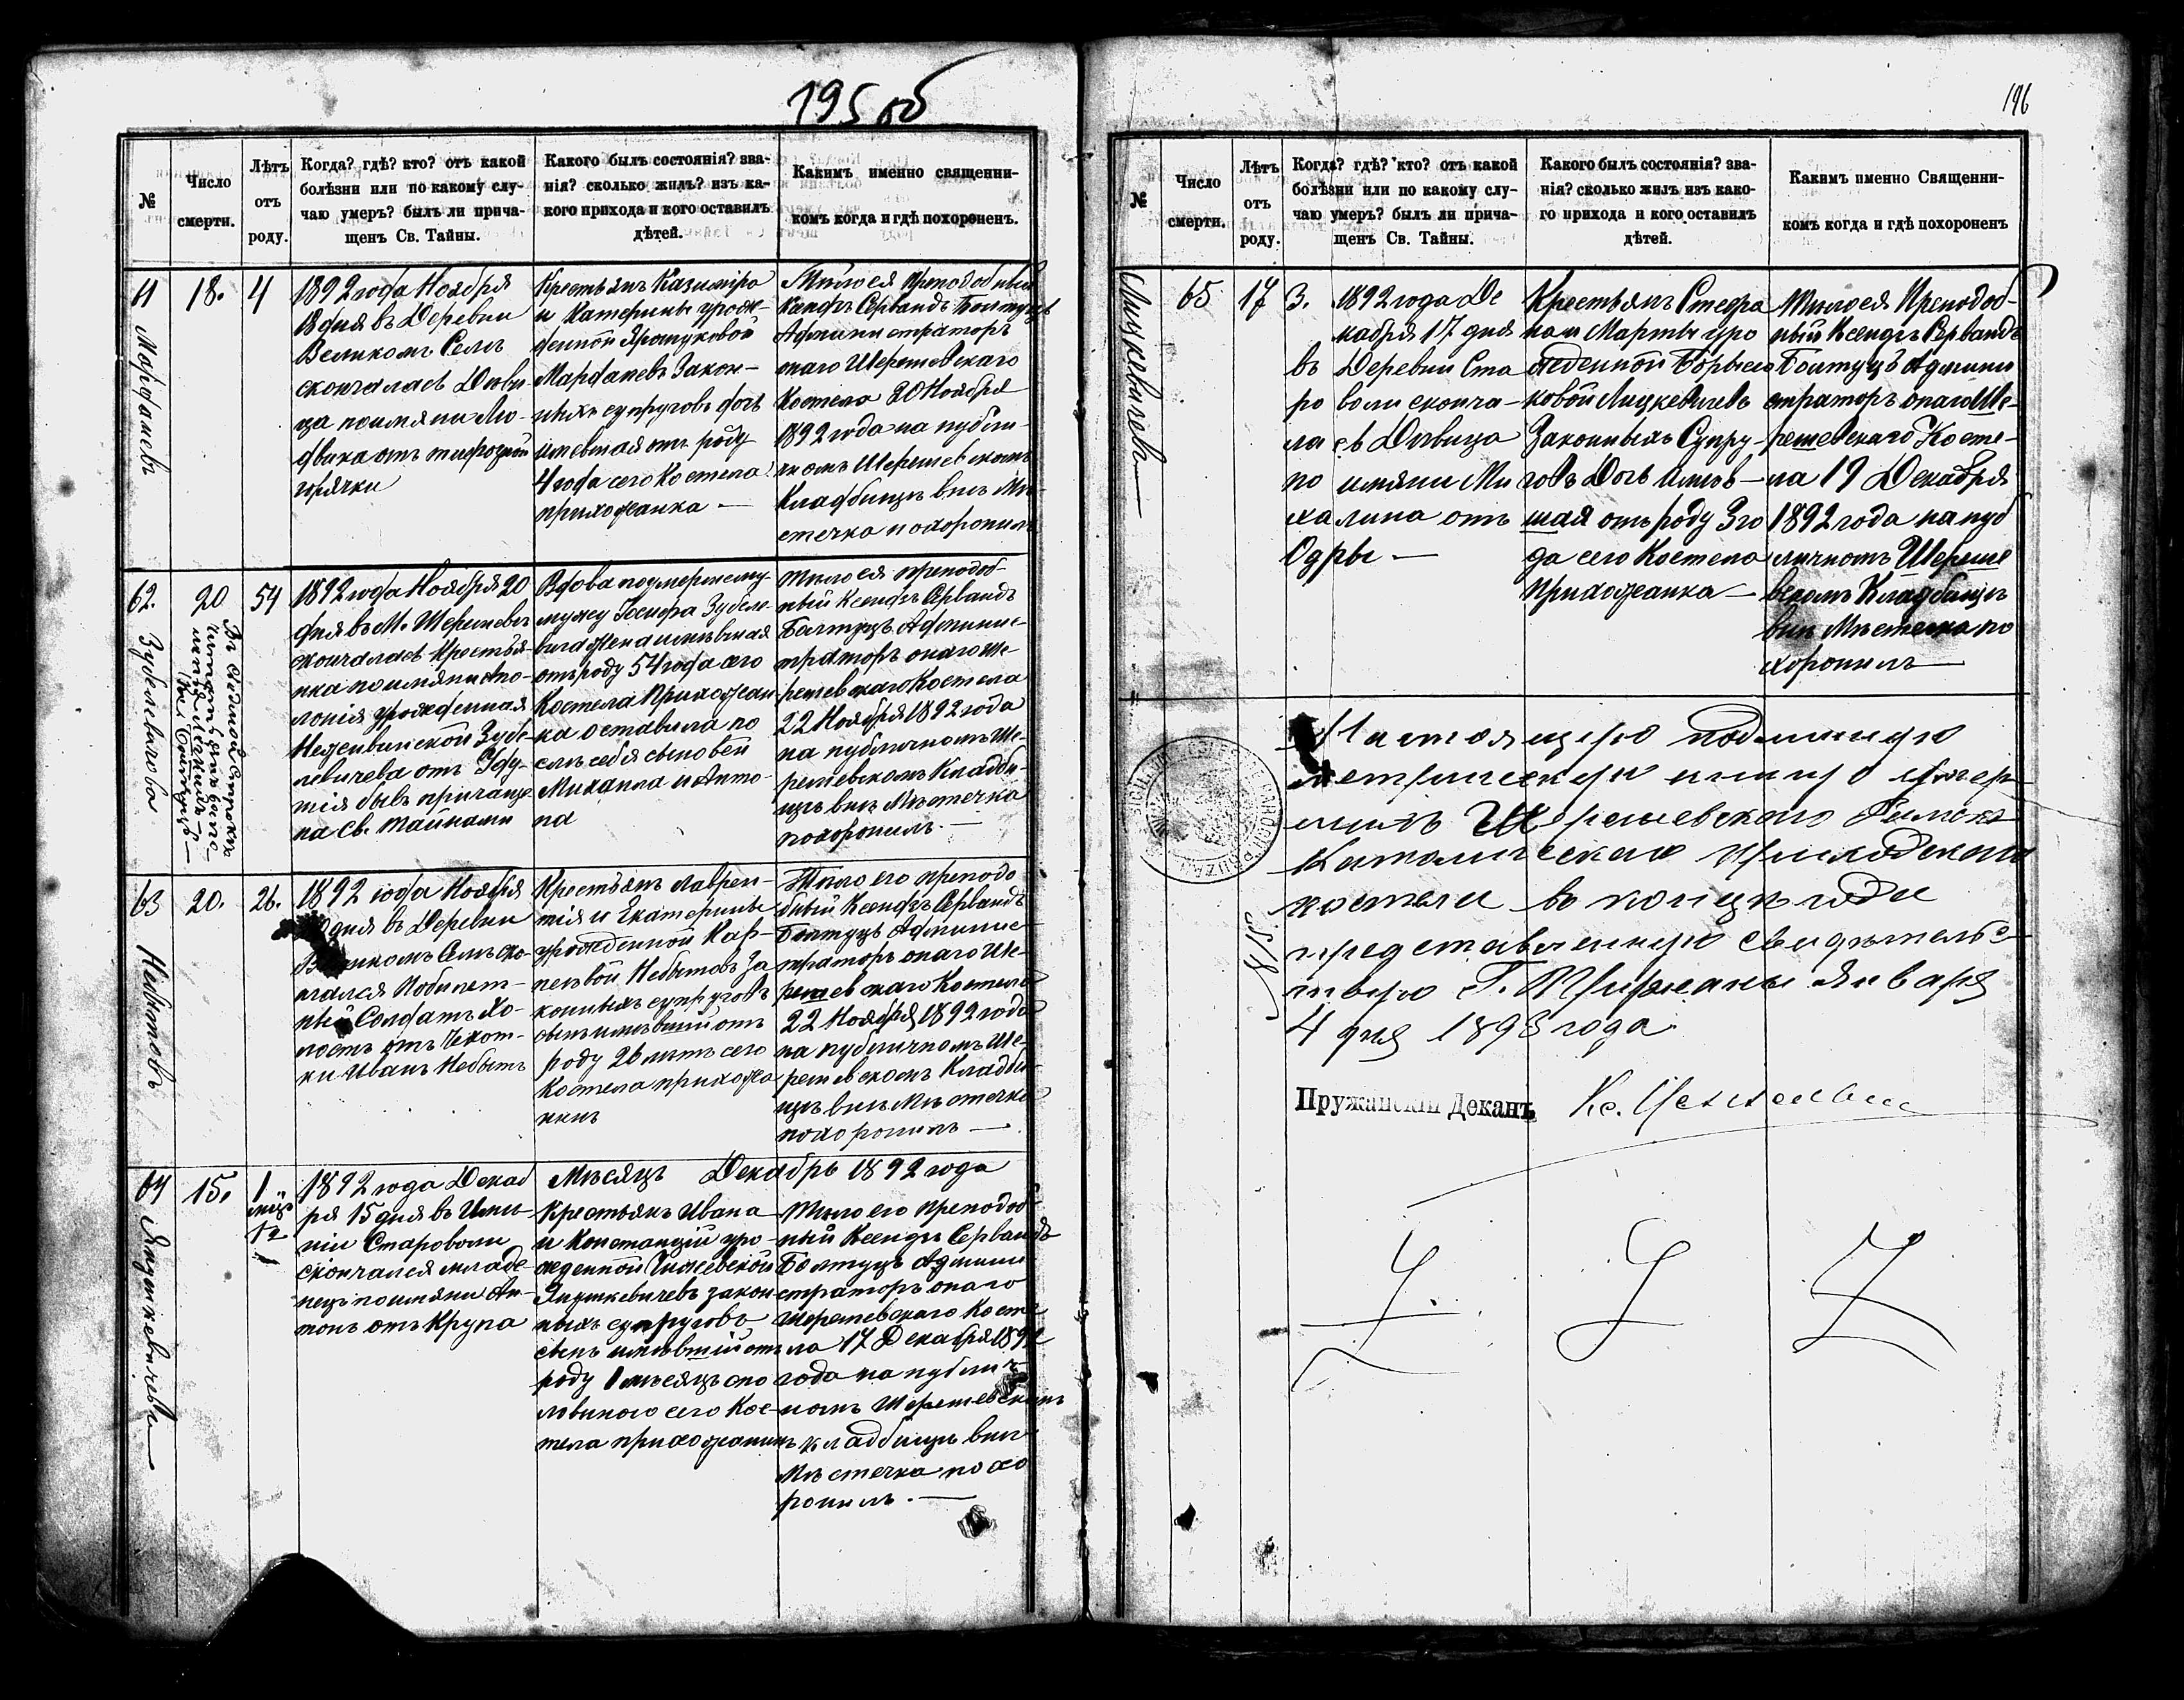 195 об
№
Число
смерти.
Лѣтъ
отъ
роду.
Когда? гдѣ? кто? отъ какой
болѣзни или по какому слу-
чаю умеръ? былъ ли прича-
щенъ Св. Тайны.
Какого былъ состоянія? зва-
нія? сколько жилъ? изъ ка-
кого прихода и кого оставилъ
дѣтей.
Какимъ именно священни-
комъ когда и гдѣ похороненъ.
61
18.
4
1892 года Ноября
18 дня въ Деревни
Великомъ Селѣ
скончалась Дѣви-
ца по имяни Лю-
двика отъ тифозной
горячки
Крестьянъ Казиміра
и Катерины урож-
денной Ярошуковой
Марфамевъ Закон-
ныхъ супруговъ дочь
имевшая отъ роду
4 года сего Костела
прихожанка —
Тѣло ея Преподобный
Ксендзъ Сервандъ Болтуцъ
Администраторъ
онаго Шерешевскаго
Костела 20 Ноября
1892 года на публи-
чномъ Шерешевскомъ
Кладбищѣ внѣ Мѣ-
стечка похоронилъ
62.
20
54
1892 года Ноября 20
дня въ М. Шерешевѣ
скончалась Крестья-
нка по имяни Апо-
лонія урожденная
Зубе-
левичева отъ
бывъ приче
на Св. Тайнами
Вдова по умершему
мужу Іосифа Зубеле-
вича Жена имѣвшая
отъ роду 54 года сего
Костела Прихожан-
ка оставила по
слѣ себя сыновей
Михаила и Анто-
на
Тѣло ея преподоб-
ный Ксендзъ Сервандъ
Болтуцъ Админис-
траторъ онаго Ше-
решевскаго Костела
22 Ноября 1892 года
на публичномъ Ше-
решевскомъ Кладби-
щѣ внѣ Мѣстечка
похоронилъ. —
Зубелевичова
63
20.
26.
1892 года Ноября
дня въ Деревни
Великомъ Селѣ ско-
нчался
Солдатъ Хо-
лостъ отъ Чахот-
ки Иванъ Небытъ
Крестьянъ Лаврен-
тія и Екатерины
урожденной Кар-
певой Небытовъ За
конныхъ супруговъ
сынъ имѣвший отъ
роду 26 лѣтъ сего
Костела прихожа
нинъ
Тѣло его преподо
бный Ксендзъ Сервандъ
Болтуцъ Админис-
траторъ онаго Ше-
решевскаго Костела
22 Ноября 1892 года
на публичномъ Ше-
решевскомъ Кладби-
щѣ внѣ Мѣстечка
похоронилъ —
Небытовъ
Мѣсяцъ Декабрь 1892 года
64
15.
1
мѣс.
1/2
1892 года Декаб
ря 15 дня въ Имѣ-
ніи Староволи
скончался младе-
нецъ по имяни Ан-
тонъ отъ Крупа
Крестьянъ Ивана
и Констанціи уро-
жденной Чижевской
Янушкевичевъ закон
ныхъ супруговъ
сынъ имѣвшій отъ
роду 1 мѣсяцъ спо
ловиною сего Кос-
тела прихожанинъ
Тѣло его преподоб
ный Ксендзъ Сервандъ
Болтуцъ Админи
страторъ онаго
Шерешевскаго Косте
ла 17 Декабря 1892
года на публич-
номъ Шерешевскомъ
кладбищѣ внѣ
Мѣстечка похо
ронилъ. —
Янушкевичевъ
196
№
Число
смерти.
Лѣтъ
отъ
роду.
Когда? гдѣ? кто? отъ какой
болѣзни или по какому слу-
чаю умеръ? былъ ли прича-
щенъ Св. Тайны.
Какого былъ состоянія? зва-
нія? сколько жилъ изъ како-
го прихода и кого оставилъ
дѣтей.
Какимъ именно Священни-
комъ когда и гдѣ похороненъ
Лицкевичевъ
65
17
3.
1892 года Де
кабря 17 дня
въ Деревни Ста
ро воли сконча-
ла сь Дѣвица
по имяни Ми
халина отъ
Одры —
Крестьянъ Стефа
на и Марты уро
жденной
Лицкевичевъ
Законныхъ Супру-
говъ Дочь имѣв-
шая отъ роду 3 го
да сего Костела
Прихожанка —
Тѣло ея Преподоб-
ный Ксендзъ Сервандъ
Болтуцъ Админи
страторъ онаго Ше-
решевскаго Косте-
ла 19 Декабря
1892 года на пуб
личномъ Шереше
вскомъ Кладбищѣ
внѣ Мѣстечка по
хоронилъ —
Настоящую подлинную
метрическую книгу умер-
шихъ Шерешевскаго Римско
Католическаго Приходскаго
костела въ концѣ года
представленную свидѣтельс-
твую Г. Пружаны Января
4 дня 1893 года.
Пружанскій Деканъ